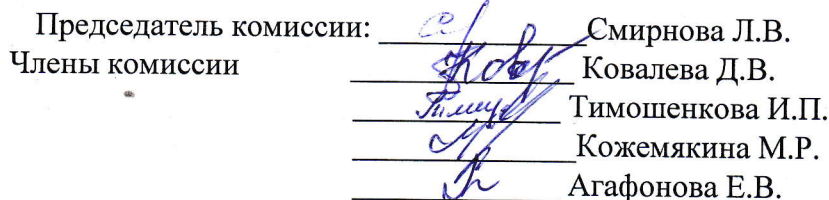 Председатель комиссии: Смирнова Л.В.
Члены комиссии Ковалева Д.В.
Тимошенкова И.П.
Кожемякина М.Р.
Агафонова Е.В.